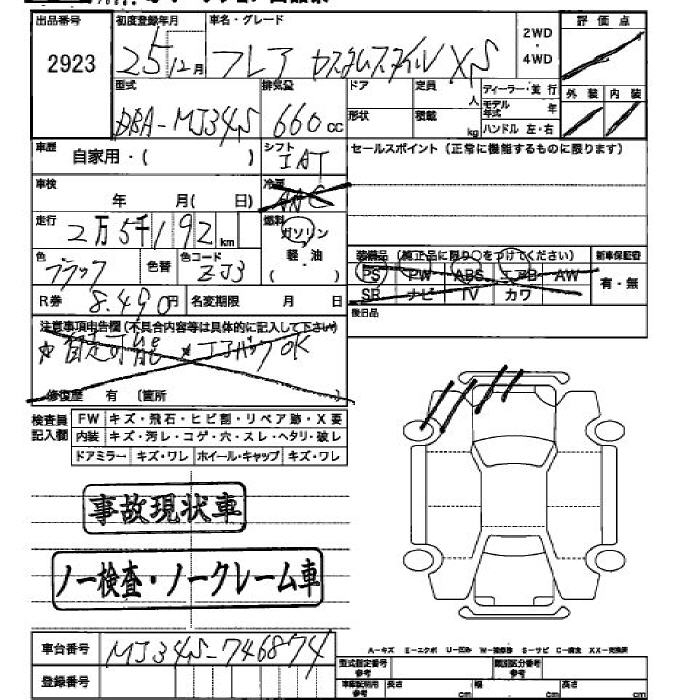 出品番号 初度登録年月 車名・グレード 2WD・4WD 評価点
2923 25年12月 フレア カスタムスタイル XS
型式 排気量 ドア 定員 人 ディーラー・並行 外装 内装
DBA-MJ34S 660cc 形状 積載 kg モデル年式 年
ハンドル 左・右
車歴 自家用・( ) シフト IAT セールスポイント(正常に機能するものに限ります)
車検 年 月( 日) 冷房 AAC
走行 2万5千192km 燃料 ガソリン
軽・油
色 ブラック 色替 色コード ZJ3 ( )
装備品(純正品に限り○をつけてください) 新車保証書
PS PW ABS エアB AW 有・無
SR ナビ TV カワ
R券 8,490円 名変期限 月 日
後日品
注意事項申告欄(不具合内容等は具体的に記入して下さい)
☆自走可能 ☆ OK
修復歴 有(箇所 )
検査員記入欄 FW キズ・飛石・ヒビ割・リペア跡・X要
内装 キズ・汚レ・コゲ・穴・スレ・ヘタリ・破レ
ドアミラー キズ・ワレ ホイール・キャップ キズ・ワレ
事故現状車
ノー検査・ノークレーム車
車台番号 MJ34S-746874
登録番号
A-キズ E-エクボ U-凹み W-補修跡 S-サビ C-腐食 XX-交換済
型式指定番号 参考 類別区分番号 参考
長さ cm 幅 cm 高さ cm